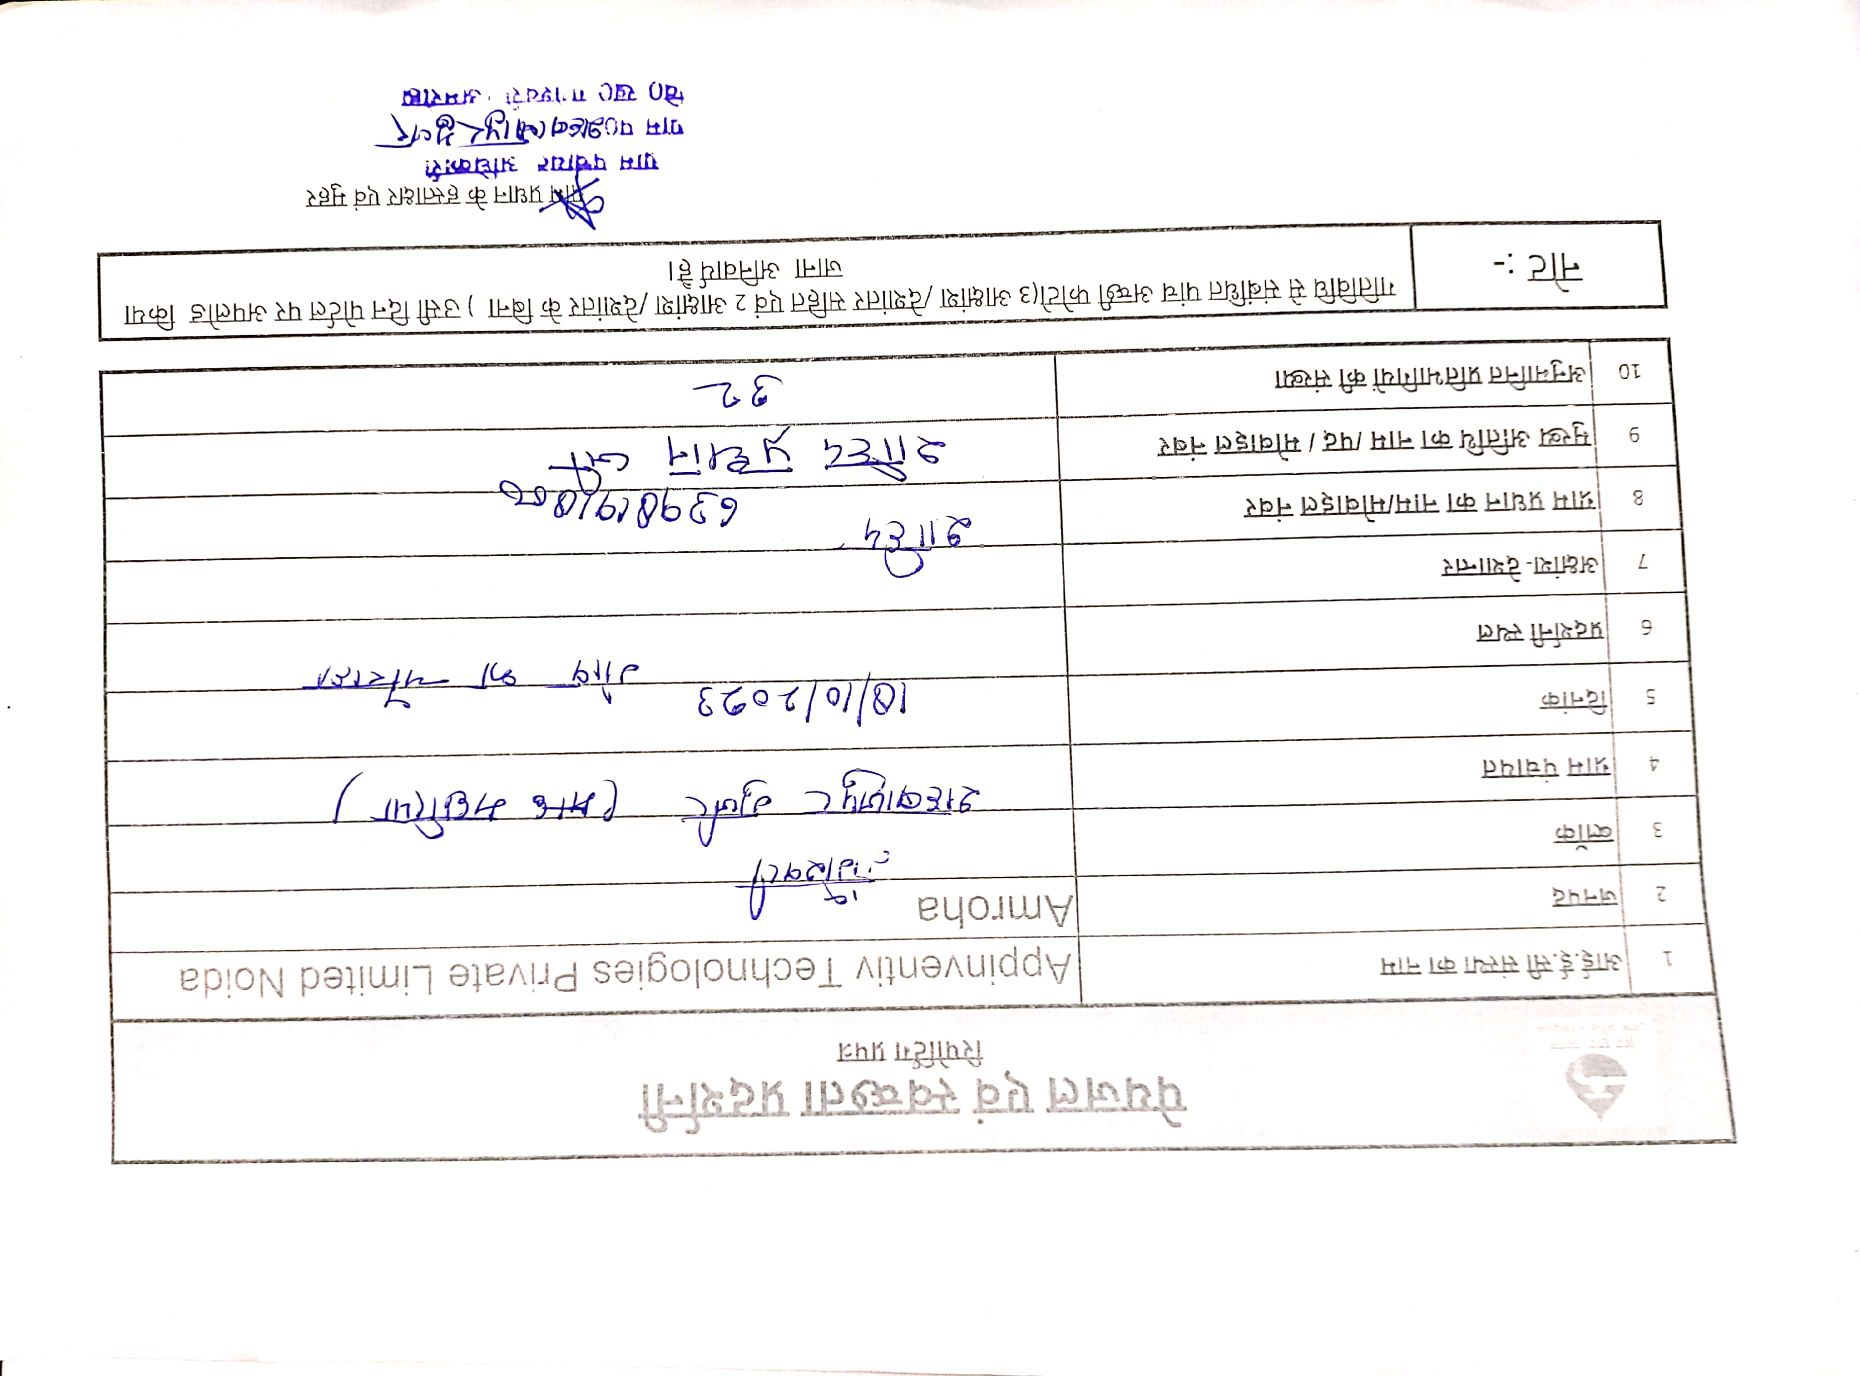 पेयजल एवं स्वच्छता प्रदर्शनी
रिपोर्टिंग प्रपत्र
1 आई.ई.सी संस्था का नाम Appinventiv Technologies Private Limited Noida
2 जनपद Amroha
3 ब्लॉक गंगेश्वरी
4 ग्राम पंचायत शहबाजपुर गुर्जर (माफ
5 दिनांक 18/10/2023
6 प्रदर्शनी स्थल गांव का चौराहा
7 अक्षांश- देशान्तर
8 ग्राम प्रधान का नाम/मोबाइल नंबर शाहिद 6398191800
9 मुख्य अतिथि का नाम /पद / मोबाइल नंबर शाहिद प्रधान जी
10 अनुमानित प्रतिभागियों की संख्या 32
नोट :- गतिविधि से संबंधित पांच अच्छी फोटो(3 आक्षांश /देशांतर सहित एवं 2 आक्षांश /देशांतर के बिना ) उसी दिन पोर्टल पर अपलोड किया
जाना अनिवार्य है।
ग्राम प्रधान के हस्ताक्षर एवं मुहर
ग्राम पंचायत अधिकारी
ग्राम पं० शहबाजपुर गुर्जर
वि० ख० गंगेश्वरी, अमरोहा